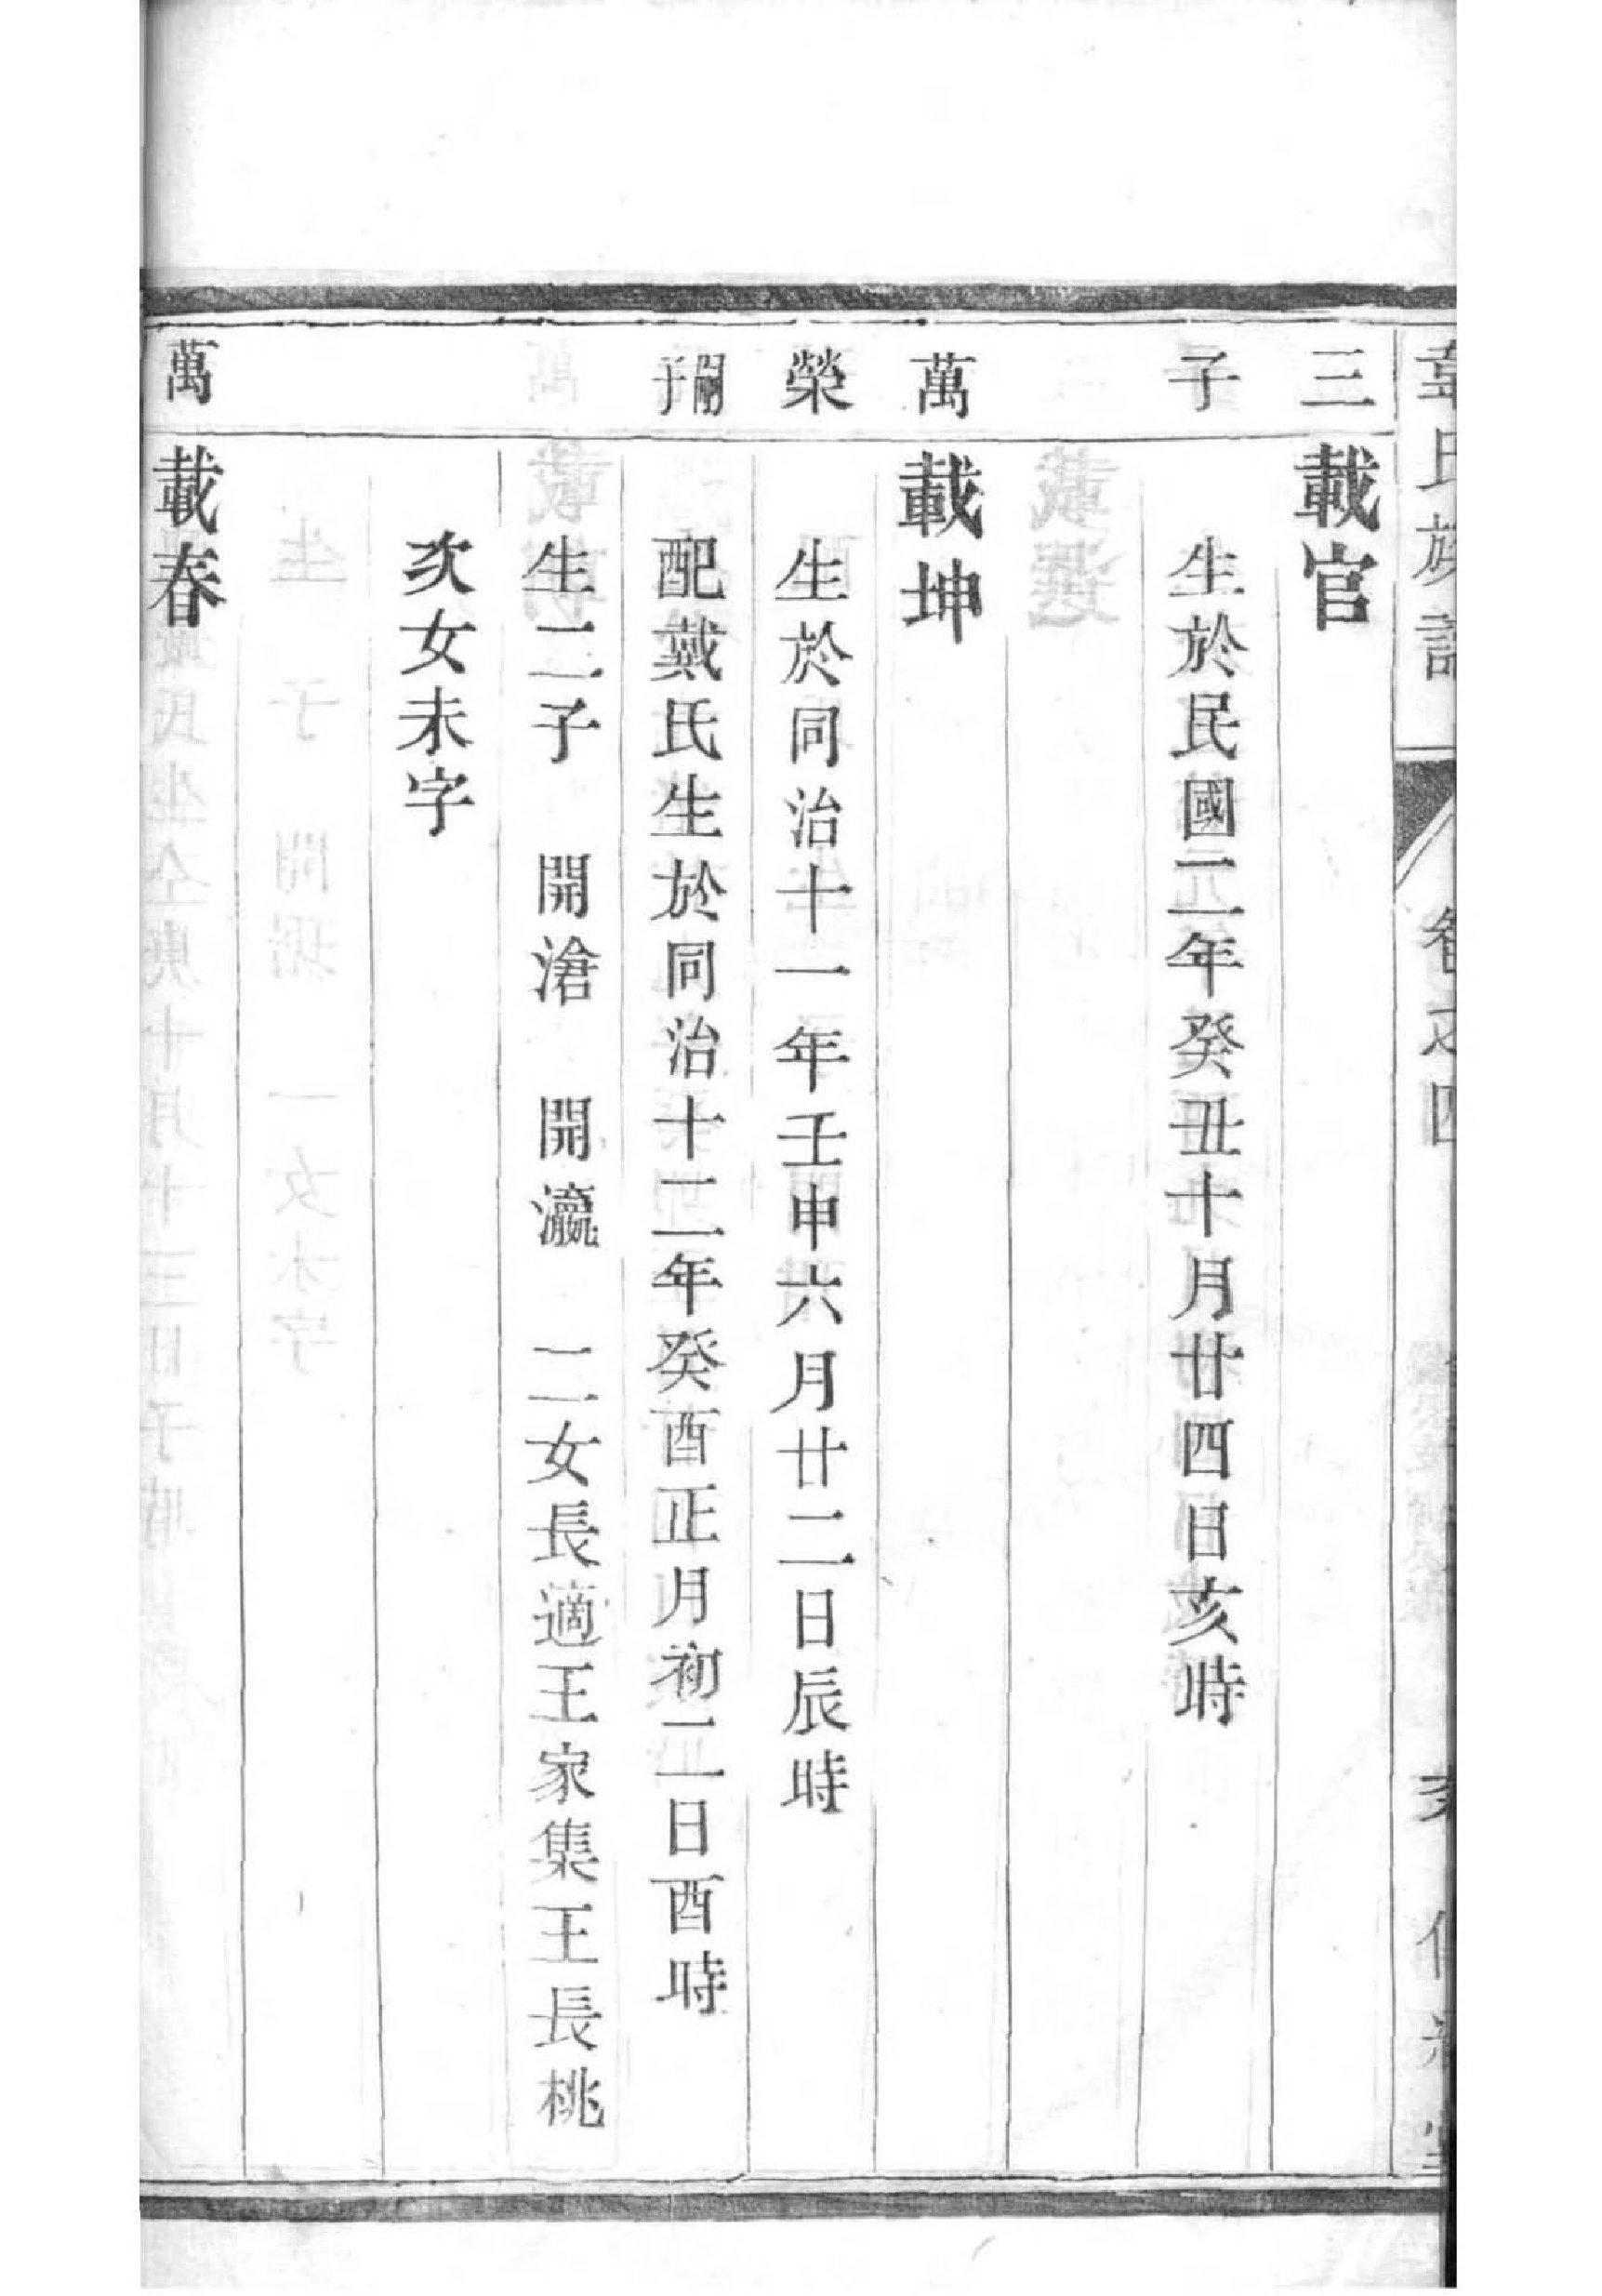 韋氏族譜 卷之四
三 載官
子 生於民國二年癸丑十月廿四日亥時
萬 載坤
榮 生於同治十一年壬申六月廿二日辰時
子 配戴氏生於同治十二年癸酉正月初二日酉時
生二子 開滄 開瀛 二女長適王家集王長桃
次女未字
萬 載春